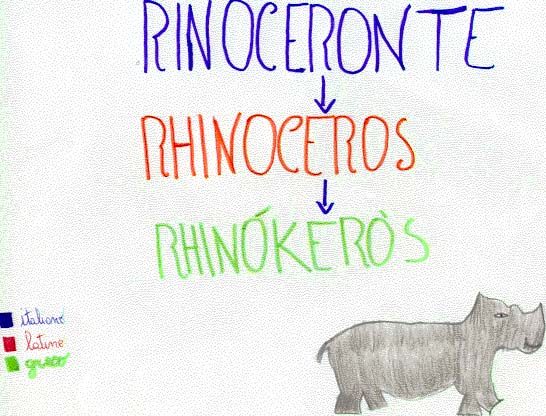 RINOCERONTE
RHINOCEROS
RHINÓKERÒS
italiano
latino
greco